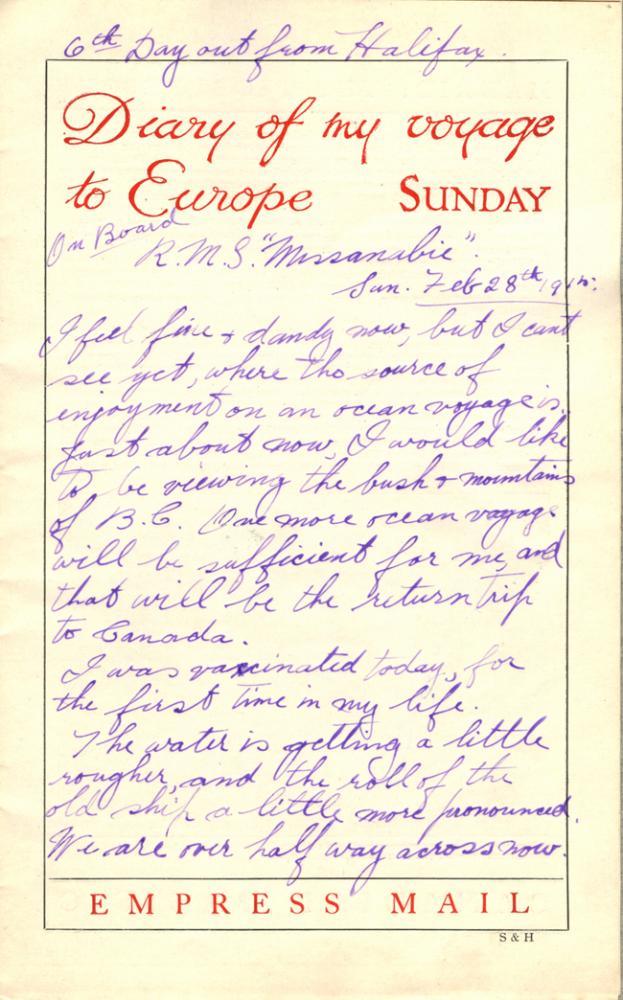 6th Day out from Halifax.
Diary of my voyage
to Europe SUNDAY
On Board
R.M.S. "Missanabie".
Sun. Feb 28th 1915.
I feel fine & dandy now, but I cant
see yet, where the source of
enjoyment on an ocean voyage is.
Just about now, I would like
to be viewing the bush & mountains
of B.C. One more ocean voyage
will be sufficient for me, and
that will be the return trip
to Canada.
I was vaccinated today, for
the first time in my life.
The water is getting a little
rougher, and the roll of the
old ship a little more pronounced.
We are over half way across now.
EMPRESS MAIL
S & H